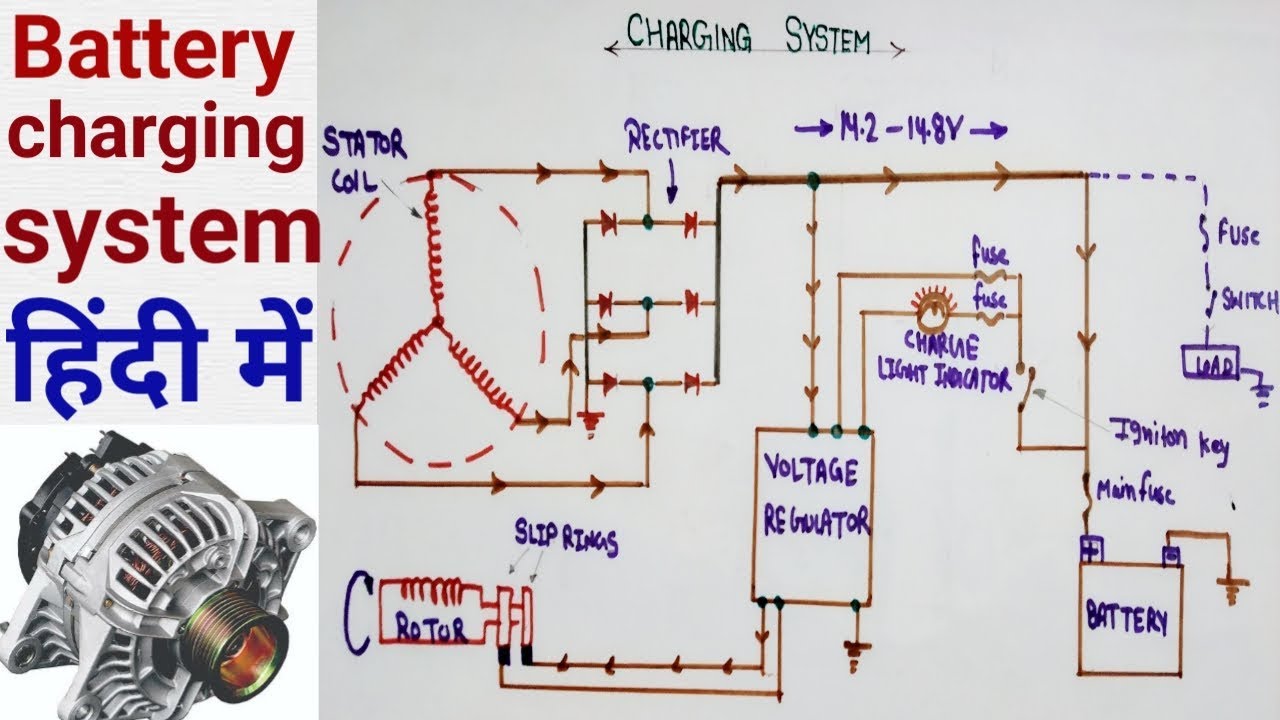 Battery
charging
system
हिंदी में
CHARGING SYSTEM
STATOR
COIL
RECTIFIER
14.2 - 14.8V
fuse
fuse
CHARGE
LIGHT INDICATOR
Fuse
SWITCH
LOAD
Igniton key
Main fuse
VOLTAGE
REGULATOR
SLIP RINGS
ROTOR
+
-
BATTERY